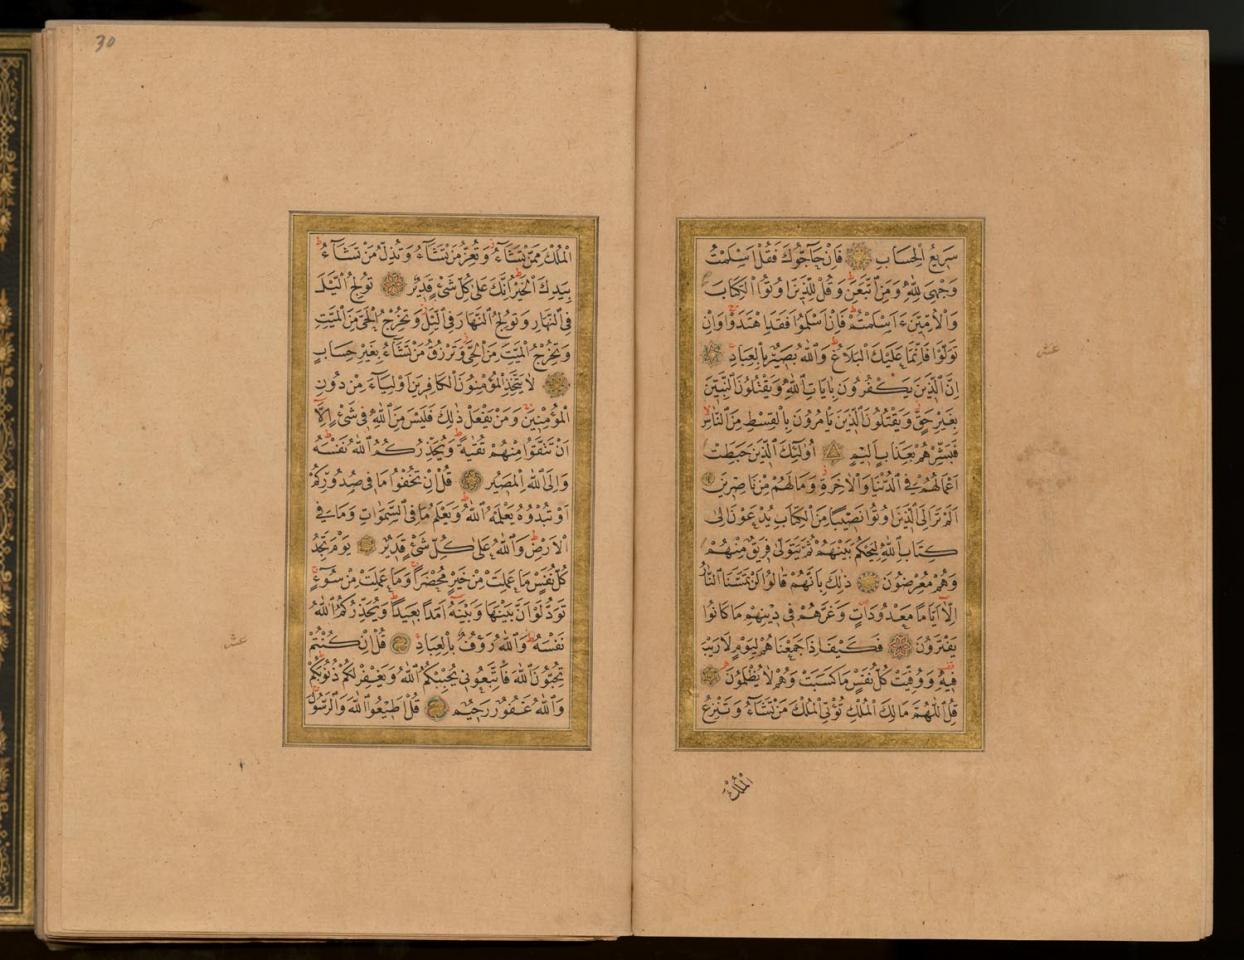 سَرِيعُ الْحِسَابِ فَإِنْ حَاجُّوكَ فَقُلْ أَسْلَمْتُ
وَجْهِيَ لِلّٰهِ وَمَنِ اتَّبَعَنِ وَقُلْ لِلَّذِينَ أُوتُوا الْكِتَابَ
وَالْأُمِّيِّينَ ءَاَسْلَمْتُمْ فَإِنْ أَسْلَمُوا فَقَدِ اهْتَدَوْا وَإِنْ
تَوَلَّوْا فَإِنَّمَا عَلَيْكَ الْبَلَاغُ وَاللّٰهُ بَصِيرٌ بِالْعِبَادِ
إِنَّ الَّذِينَ يَكْفُرُونَ بِآيَاتِ اللّٰهِ وَيَقْتُلُونَ النَّبِيِّينَ
بِغَيْرِ حَقٍّ وَيَقْتُلُونَ الَّذِينَ يَأْمُرُونَ بِالْقِسْطِ مِنَ النَّاسِ
فَبَشِّرْهُمْ بِعَذَابٍ أَلِيمٍ أُولٰئِكَ الَّذِينَ حَبِطَتْ
أَعْمَالُهُمْ فِي الدُّنْيَا وَالْآخِرَةِ وَمَا لَهُمْ مِنْ نَاصِرِينَ
أَلَمْ تَرَ إِلَى الَّذِينَ أُوتُوا نَصِيبًا مِنَ الْكِتَابِ يُدْعَوْنَ إِلَى
كِتَابِ اللّٰهِ لِيَحْكُمَ بَيْنَهُمْ ثُمَّ يَتَوَلَّى فَرِيقٌ مِنْهُمْ
وَهُمْ مُعْرِضُونَ ذٰلِكَ بِأَنَّهُمْ قَالُوا لَنْ تَمَسَّنَا النَّارُ
إِلَّا أَيَّامًا مَعْدُودَاتٍ وَغَرَّهُمْ فِي دِينِهِمْ مَا كَانُوا
يَفْتَرُونَ فَكَيْفَ إِذَا جَمَعْنَاهُمْ لِيَوْمٍ لَا رَيْبَ
فِيهِ وَوُفِّيَتْ كُلُّ نَفْسٍ مَا كَسَبَتْ وَهُمْ لَا يُظْلَمُونَ
قُلِ اللّٰهُمَّ مَالِكَ الْمُلْكِ تُؤْتِي الْمُلْكَ مَنْ تَشَاءُ وَتَنْزِعُ
الْمُلْكَ
عشر
30
الْمُلْكَ مِمَّنْ تَشَاءُ وَتُعِزُّ مَنْ تَشَاءُ وَتُذِلُّ مَنْ تَشَاءُ
بِيَدِكَ الْخَيْرُ إِنَّكَ عَلَى كُلِّ شَيْءٍ قَدِيرٌ تُولِجُ اللَّيْلَ
فِي النَّهَارِ وَتُولِجُ النَّهَارَ فِي اللَّيْلِ وَتُخْرِجُ الْحَيَّ مِنَ الْمَيِّتِ
وَتُخْرِجُ الْمَيِّتَ مِنَ الْحَيِّ وَتَرْزُقُ مَنْ تَشَاءُ بِغَيْرِ حِسَابٍ
لَا يَتَّخِذِ الْمُؤْمِنُونَ الْكَافِرِينَ أَوْلِيَاءَ مِنْ دُونِ
الْمُؤْمِنِينَ وَمَنْ يَفْعَلْ ذٰلِكَ فَلَيْسَ مِنَ اللّٰهِ فِي شَيْءٍ إِلَّا
أَنْ تَتَّقُوا مِنْهُمْ تُقٰيةً وَيُحَذِّرُكُمُ اللّٰهُ نَفْسَهُ
وَإِلَى اللّٰهِ الْمَصِيرُ قُلْ إِنْ تُخْفُوا مَا فِي صُدُورِكُمْ
أَوْ تُبْدُوهُ يَعْلَمْهُ اللّٰهُ وَيَعْلَمُ مَا فِي السَّمٰوَاتِ وَمَا فِي
الْأَرْضِ وَاللّٰهُ عَلَى كُلِّ شَيْءٍ قَدِيرٌ يَوْمَ تَجِدُ
كُلُّ نَفْسٍ مَا عَمِلَتْ مِنْ خَيْرٍ مُحْضَرًا وَمَا عَمِلَتْ مِنْ سُوءٍ
تَوَدُّ لَوْ أَنَّ بَيْنَهَا وَبَيْنَهُ أَمَدًا بَعِيدًا وَيُحَذِّرُكُمُ اللّٰهُ
نَفْسَهُ وَاللّٰهُ رَؤُوفٌ بِالْعِبَادِ قُلْ إِنْ كُنْتُمْ
تُحِبُّونَ اللّٰهَ فَاتَّبِعُونِي يُحْبِبْكُمُ اللّٰهُ وَيَغْفِرْ لَكُمْ ذُنُوبَكُمْ
وَاللّٰهُ غَفُورٌ رَحِيمٌ قُلْ أَطِيعُوا اللّٰهَ وَالرَّسُولَ
عشر